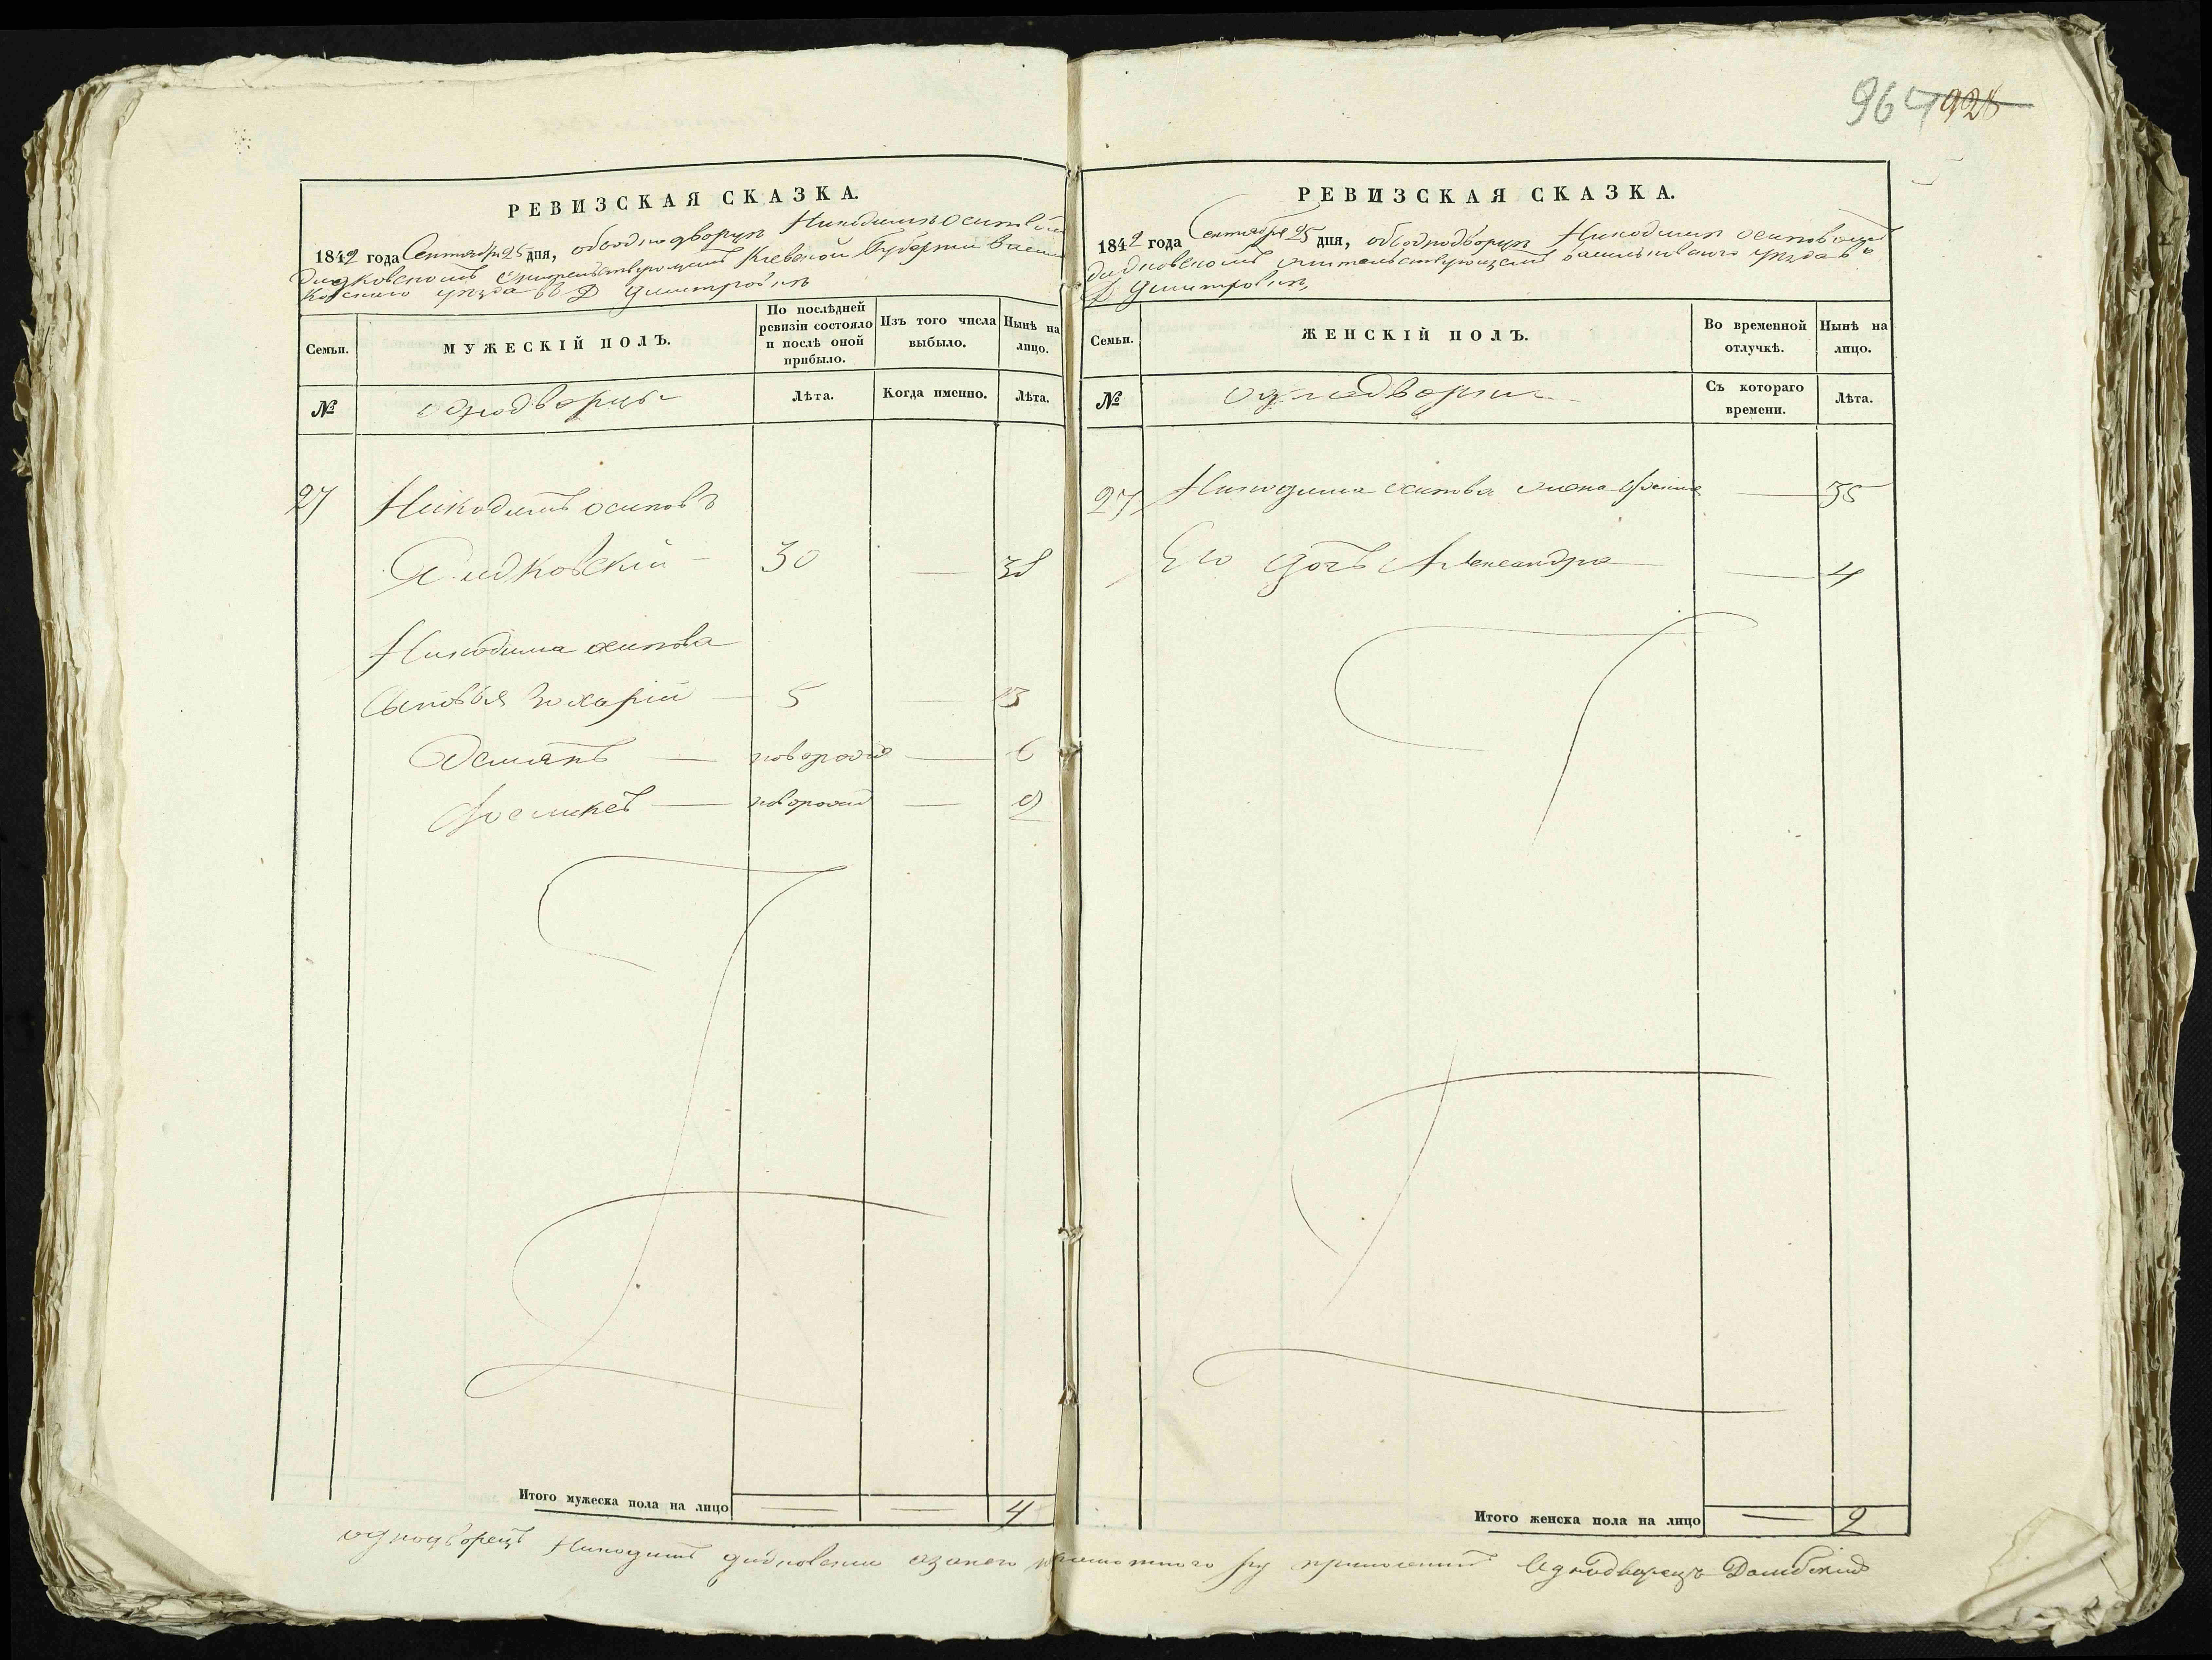 964 928
РЕВИЗСКАЯ СКАЗКА.
1842 года Сентября 25 дня, объ однодворцѣ Никодимѣ Осиповѣ
Дидковскомъ жительствующемъ Киевской Губернии Василь
Ковского уѣзда въ Д Димитровкѣ
Семьи.
МУЖЕСКІЙ ПОЛЪ.
По послѣдней ревизіи состояло и послѣ оной прибыло.
Изъ того числа выбыло.
Нынѣ на лицо.
№
однодворцы
Лѣта.
Когда именно.
Лѣта.
27 Никодимъ осиповъ
Дидковскій — 30 — 38
Никодима осипова
Сыновья Захарій — 5 — 13
Демянъ — новорожд — 6
— новорожд — 2
Итого мужеска пола на лицо — — 4
РЕВИЗСКАЯ СКАЗКА.
1842 года Сентября 25 дня, объ однодворцѣ Никодимѣ осиповѣ
дидковскомъ жительствующемъ васильковского уѣзда въ
Д Димитровкѣ,
Семьи.
ЖЕНСКІЙ ПОЛЪ.
Во временной отлучкѣ.
Нынѣ на лицо.
№
однодворки
Съ котораго времени.
Лѣта.
27 Никодима осипова жена — 35
Его дочь Александра — 4
Итого женска пола на лицо — 2
однодворецъ Никодимъ дидковский Однодворецъ